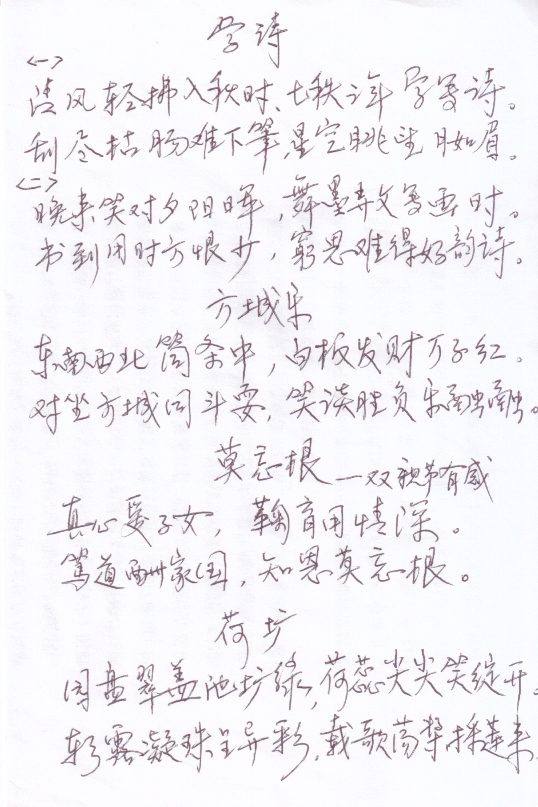 学诗
<一>
清风轻拂入秋时，七秩之年学写诗。
刮尽枯肠难下笔，星空眺望月如眉。
<二>
晚来笑对夕阳晖，舞墨弄文写画时。
书到用时方恨少，穷思难得好韵诗。
方城乐
东南西北筒条中，白板发财万子红。
对坐方城同斗耍，笑谈胜负乐融融。
莫忘根 —双亲节有感
真心爱子女，鞠育用情深。
笃道酬家国，知恩莫忘根。
荷圹
圆盘翠盖池圹绿，荷蕊尖尖笑绽开。
彩露凝珠呈异彩，载歌荡桨採莲来